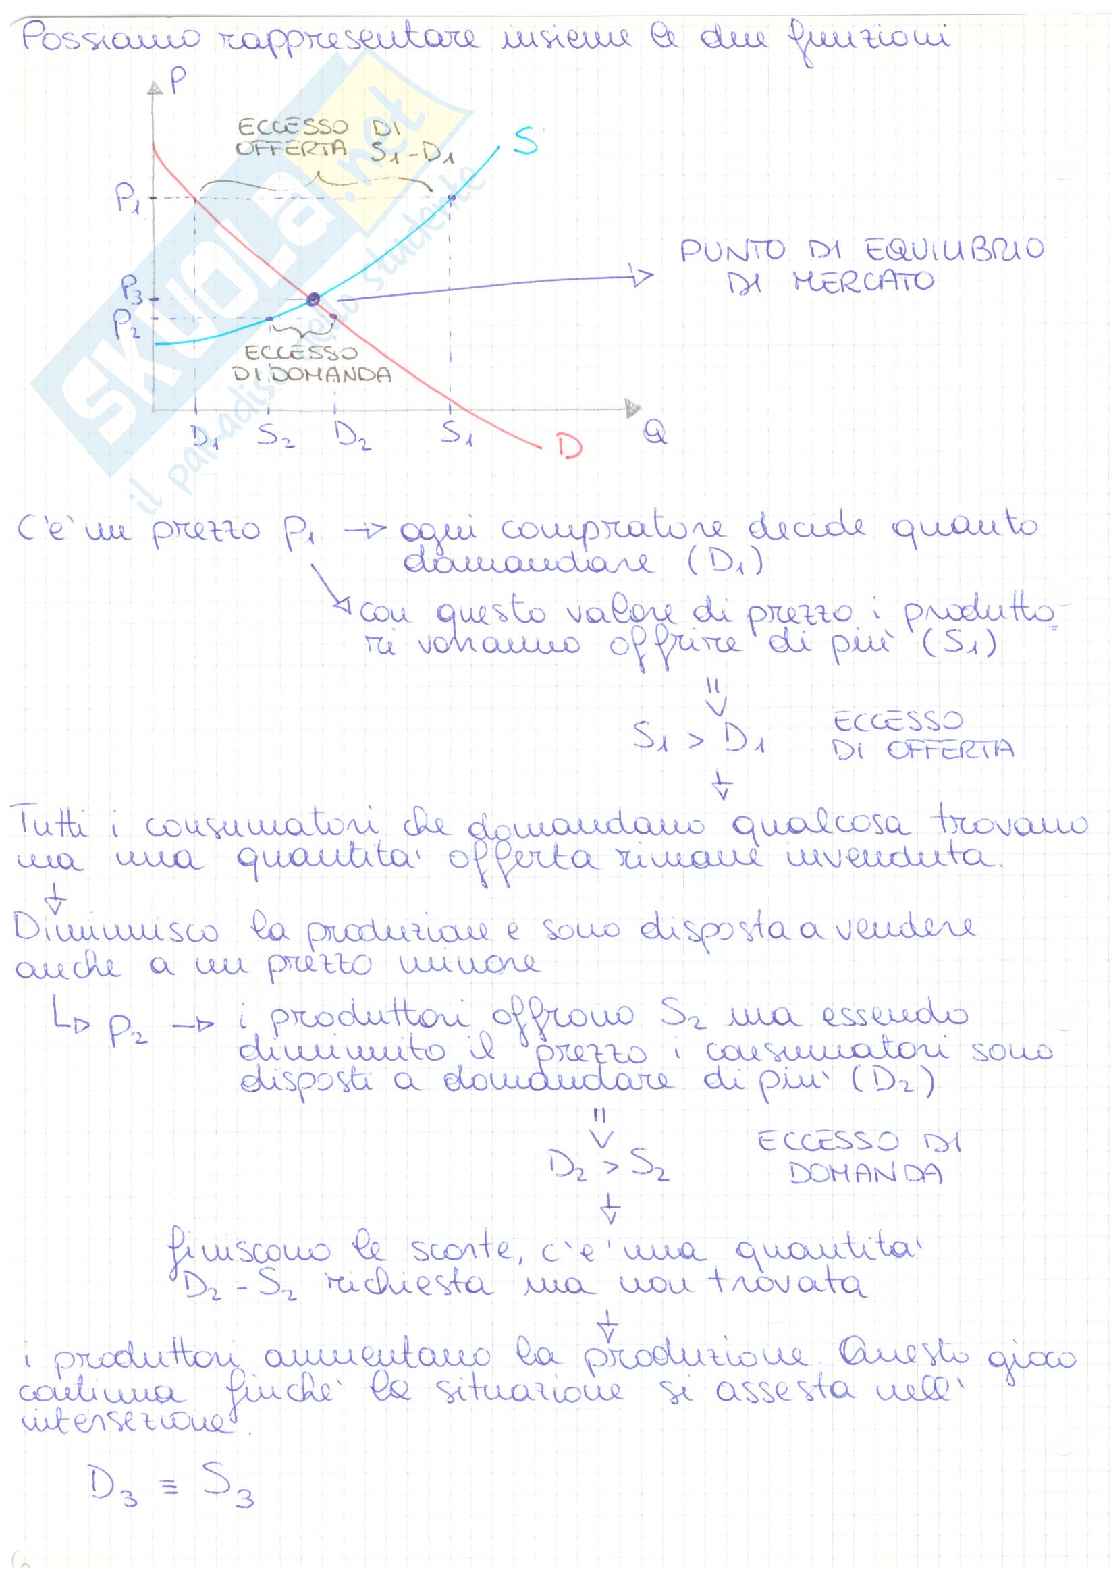 Possiamo rappresentare insieme le due funzioni
P
ECCESSO DI
OFFERTA S1-D1
S
P1
PUNTO DI EQUILIBRIO
DI MERCATO
P3
P2
ECCESSO
DI DOMANDA
D1 S2 D2 S1 Q
D
SKUOLA.net
il paradiso dello studente
C'è un prezzo p1 → ogni compratore decide quanto
domandare (D1)
con questo valore di prezzo i produtto-
ri vorranno offrire di più (S1)
S1 > D1 ECCESSO
DI OFFERTA
Tutti i consumatori che domandano qualcosa trovano
ma una quantità offerta rimane invenduta.
Diminuisco la produzione e sono disposta a vendere
anche a un prezzo minore
p2 → i produttori offrono S2 ma essendo
diminuito il prezzo i consumatori sono
disposti a domandare di più (D2)
D2 > S2 ECCESSO DI
DOMANDA
finiscono le scorte, c'è una quantità
D2 - S2 richiesta ma non trovata
i produttori aumentano la produzione. Questo gioco
continua finché la situazione si assesta nell'
intersezione.
D3 ≡ S3